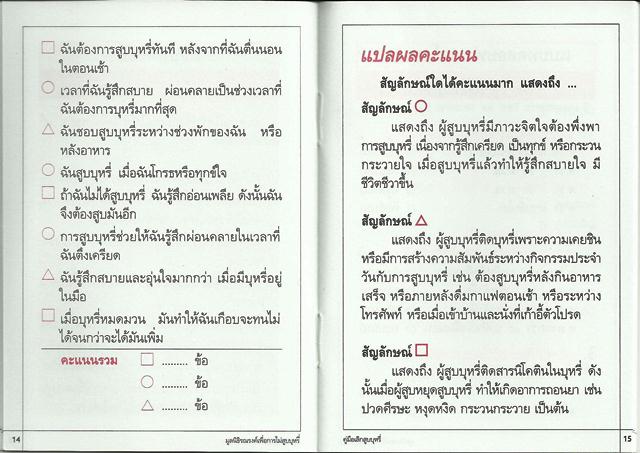 □ ฉันต้องการสูบบุหรี่ทันที หลังจากที่ฉันตื่นนอน
ในตอนเช้า
○ เวลาที่ฉันรู้สึกสบาย ผ่อนคลายเป็นช่วงเวลาที่
ฉันต้องการบุหรี่มากที่สุด
△ ฉันชอบสูบบุหรี่ระหว่างช่วงพักของฉัน หรือ
หลังอาหาร
○ ฉันสูบบุหรี่ เมื่อฉันโกรธหรือทุกข์ใจ
□ ถ้าฉันไม่ได้สูบบุหรี่ ฉันรู้สึกอ่อนเพลีย ดังนั้นฉัน
จึงต้องสูบมันอีก
○ การสูบบุหรี่ช่วยให้ฉันรู้สึกผ่อนคลายในเวลาที่
ฉันตึงเครียด
△ ฉันรู้สึกสบายและอุ่นใจมากกว่า เมื่อมีบุหรี่อยู่
ในมือ
□ เมื่อบุหรี่หมดมวน มันทำให้ฉันเกือบจะทนไม่
ได้จนกว่าจะได้มันเพิ่ม
คะแนนรวม □ ......... ข้อ
○ ......... ข้อ
△ ......... ข้อ
14 มูลนิธิรณรงค์เพื่อการไม่สูบบุหรี่
แปลผลคะแนน
สัญลักษณ์ใดได้คะแนนมาก แสดงถึง ...
สัญลักษณ์ ○
แสดงถึง ผู้สูบบุหรี่มีภาวะจิตใจต้องพึ่งพา
การสูบบุหรี่ เนื่องจากรู้สึกเครียด เป็นทุกข์ หรือกระวน
กระวายใจ เมื่อสูบบุหรี่แล้วทำให้รู้สึกสบายใจ มี
ชีวิตชีวาขึ้น
สัญลักษณ์ △
แสดงถึง ผู้สูบบุหรี่ติดบุหรี่เพราะความเคยชิน
หรือมีการสร้างความสัมพันธ์ระหว่างกิจกรรมประจำ
วันกับการสูบบุหรี่ เช่น ต้องสูบบุหรี่หลังกินอาหาร
เสร็จ หรือภายหลังดื่มกาแฟตอนเช้า หรือระหว่าง
โทรศัพท์ หรือเมื่อเข้าบ้านและนั่งที่เก้าอี้ตัวโปรด
สัญลักษณ์ □
แสดงถึง ผู้สูบบุหรี่ติดสารนิโคตินในบุหรี่ ดัง
นั้นเมื่อผู้สูบหยุดสูบบุหรี่ ทำให้เกิดอาการถอนยา เช่น
ปวดศีรษะ หงุดหงิด กระวนกระวาย เป็นต้น
คู่มือเลิกสูบบุหรี่ 15